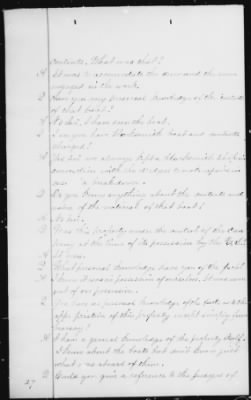 contents, What was that?
A It was to accomodate the men and the men
engaged in the work.
Q Have you any personal knowledge of the contents
of that boat?
A No Sir, I have seen the boat.
Q Can you have blacksmith boat and contents
charged?
A Yes Sir we always kept a blacksmith shop in
connection with the dredges to make repairs in
case a breakdown.
Q Do you know anything about the contents and
value of the material of that boat?
A No Sir.
Q Was this property under the control of the Com
pany at the time of its possession by the
A It was.
Q What personal knowledge have you of the fact?
A
out of our possession.
Q You have no personal knowledge of the facts as to the
appropriation of this property except simply from
hearsay?
A I have a general knowledge of the property itself.
I know about the boats but don't know just
what was aboard of them.
Q Could you give a reference to the pages of
27